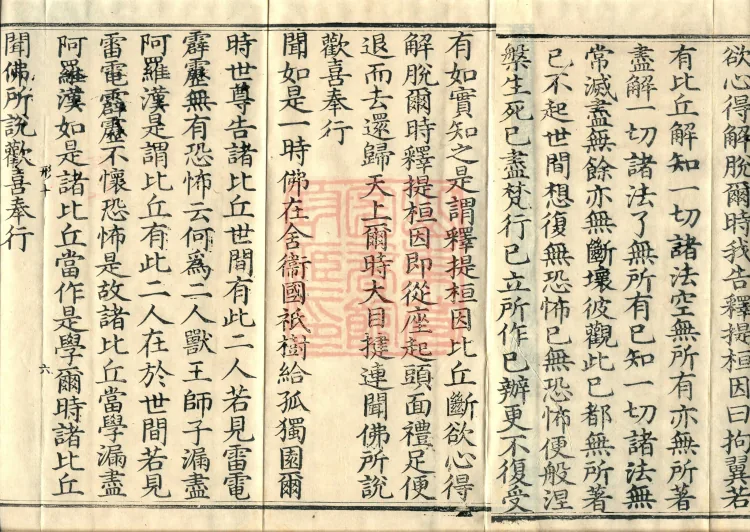 欲心得解脫爾時我告釋提桓因曰拘翼若
有比丘解知一切諸法空無所有亦無所著
盡解一切諸法了無所有已知一切諸法無
常滅盡無餘亦無斷壞彼觀此已都無所著
已不起世間想復無恐怖已無恐怖便般涅
槃生死已盡梵行已立所作已辦更不復受
有如實知之是謂釋提桓因比丘斷欲心得
解脫爾時釋提桓因即從座起頭面禮足便
退而去還歸天上爾時大目揵連聞佛所說
歡喜奉行
聞如是一時佛在舍衞國祇樹給孤獨園爾
時世尊告諸比丘世間有此二人若見雷電
霹靂無有恐怖云何爲二人獸王師子漏盡
阿羅漢是謂比丘有此二人在於世間若見
雷電霹靂不懷恐怖是故諸比丘當學漏盡
阿羅漢如是諸比丘當作是學爾時諸比丘
六
聞佛所說歡喜奉行